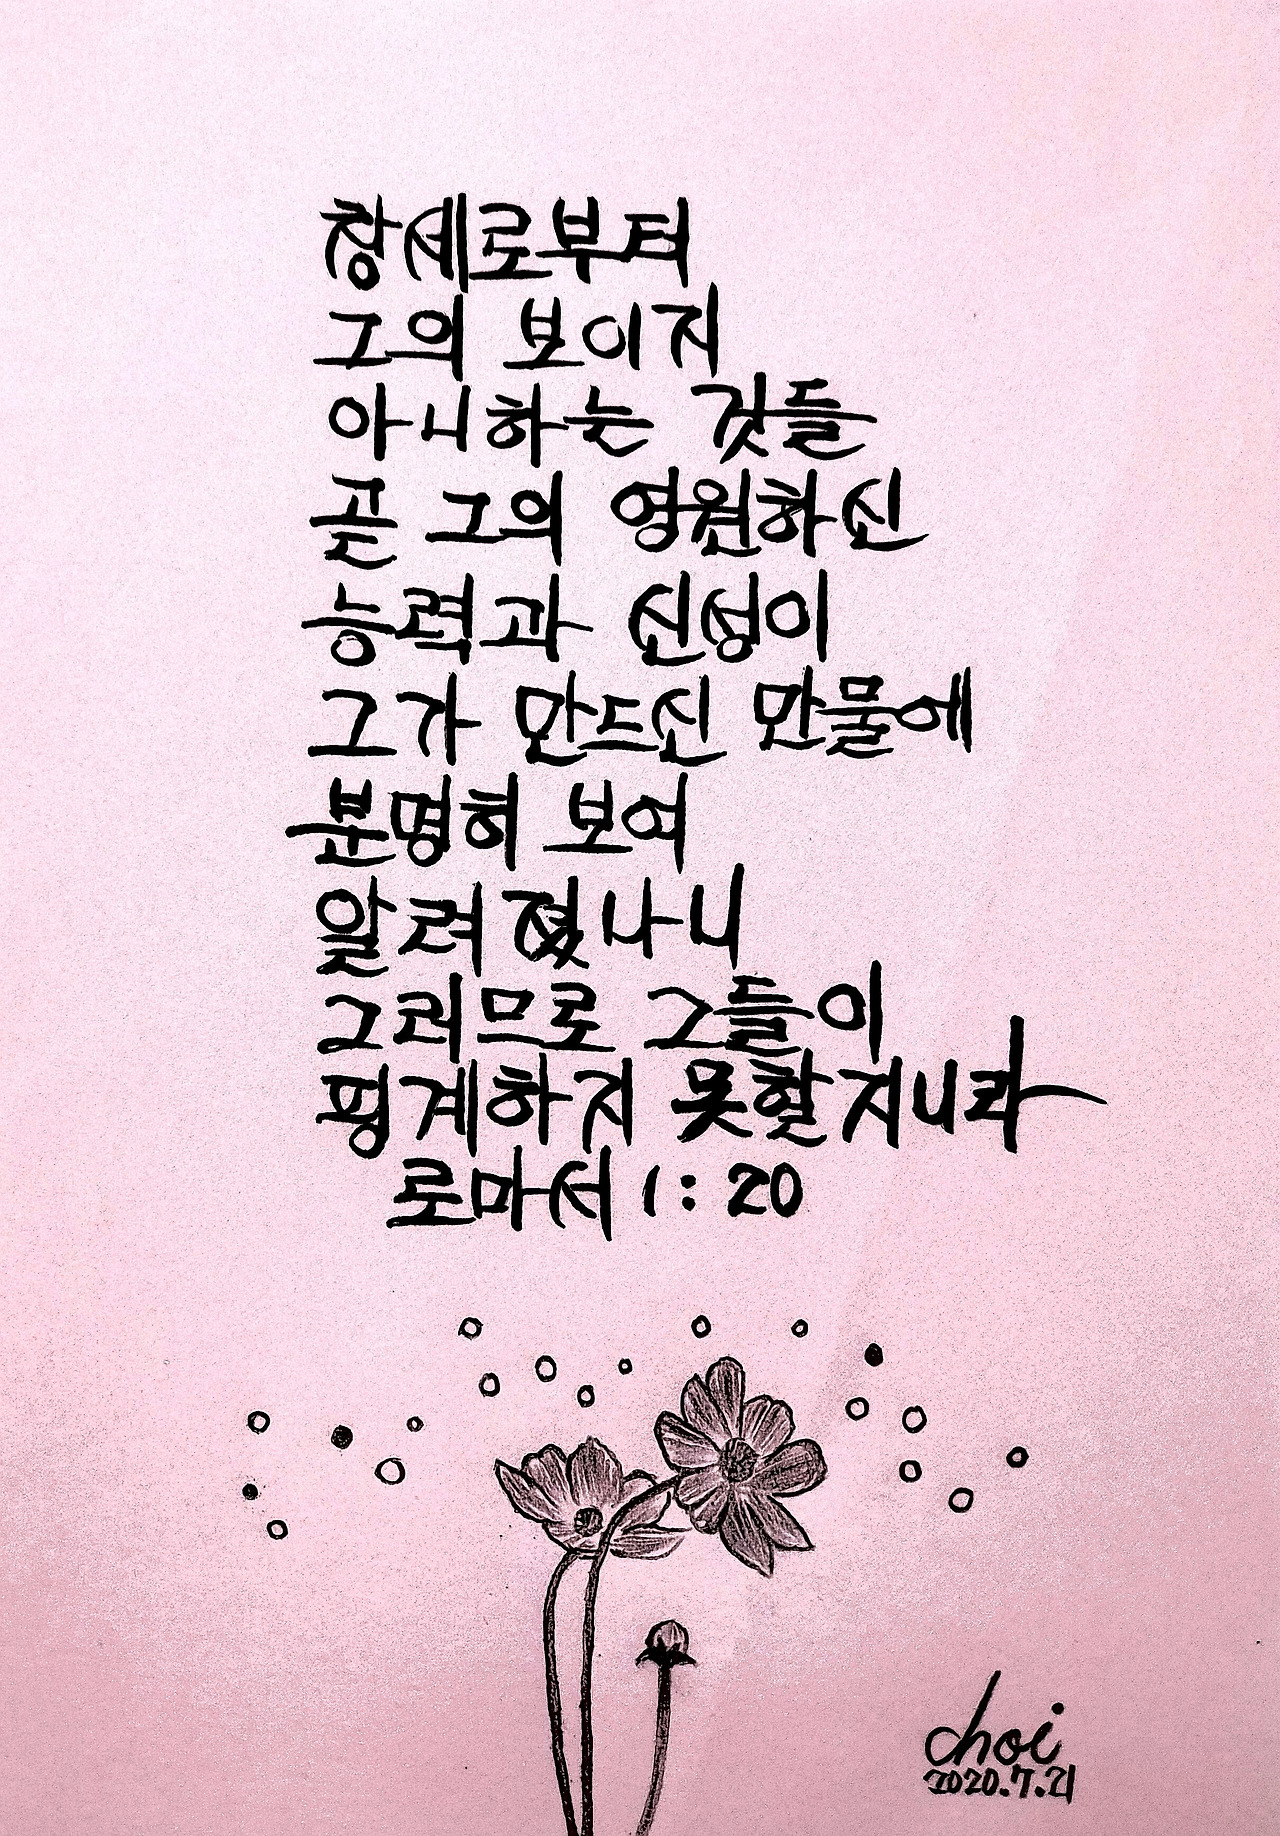 창세로부터
그의 보이지
아니하는 것들
곧 그의 영원하신
능력과 신성이
그가 만드신 만물에
분명히 보여
알려졌나니
그러므로 그들이
핑계하지 못할지니라
로마서 1:20
choi
2020.7.21